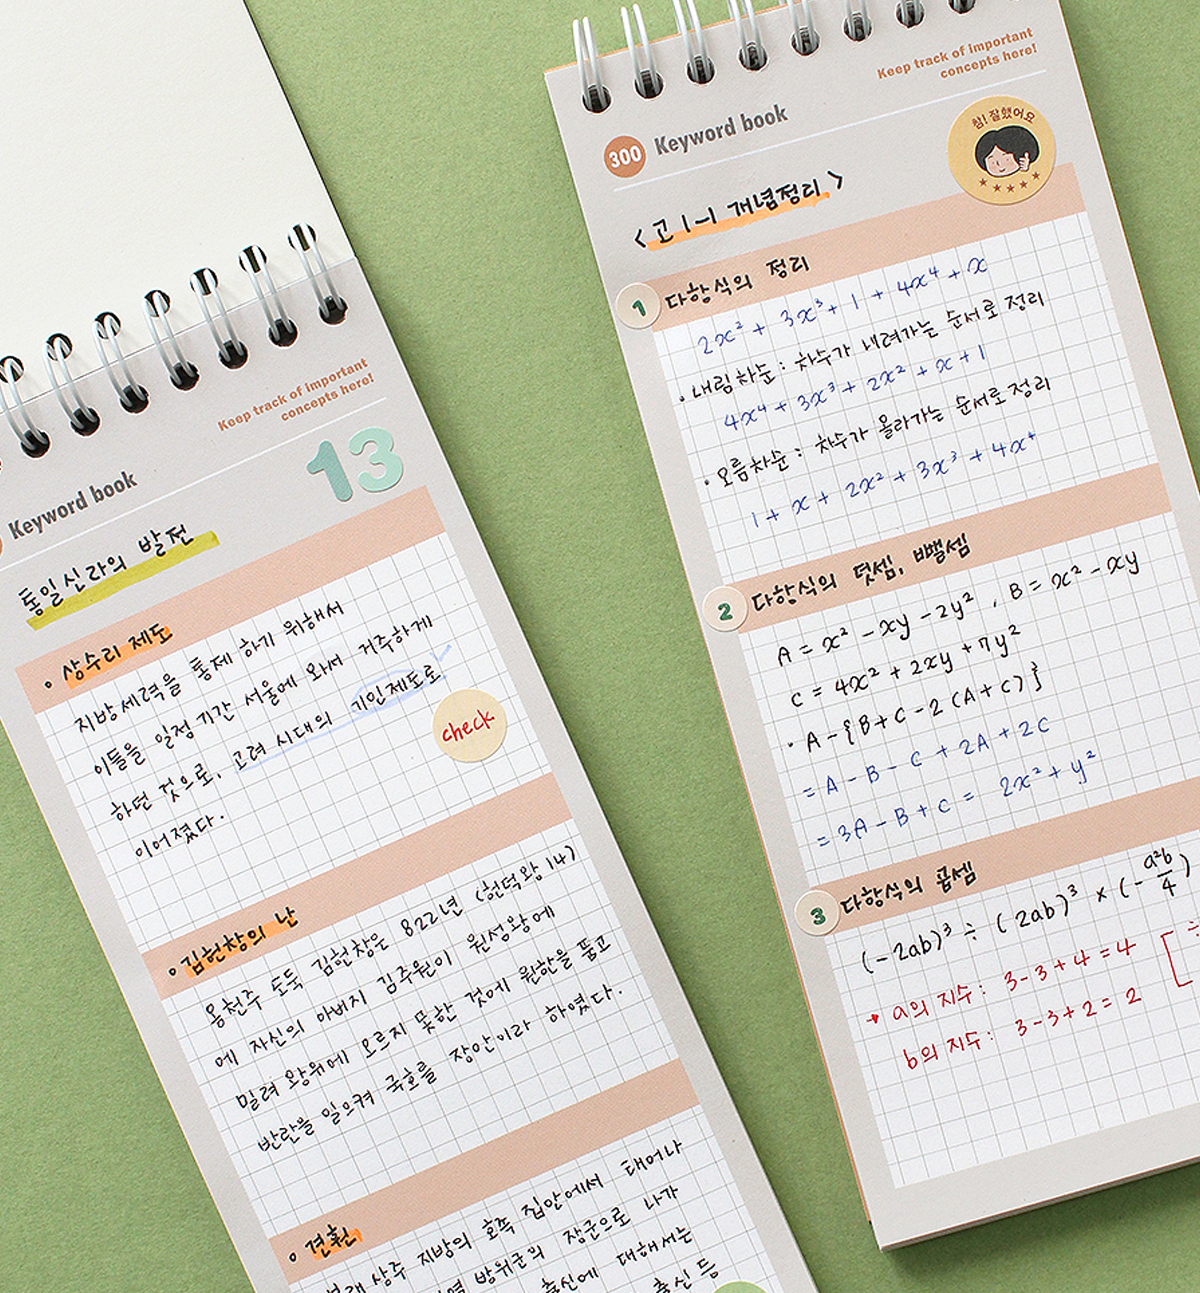 Keep track of important
concepts here!
Keyword book
13
통일신라의 발전
• 상수리 제도
지방세력을 통제 하기 위해서
이들을 일정 기간 서울에 와서 거주하게
하던 것으로, 고려 시대의 기인제도로
이어졌다.
check
• 김헌창의 난
웅천주 도독 김헌창은 822년 (헌덕왕 14)
에 자신의 아버지 김주원이 원성왕에
밀려 왕위에 오르지 못한 것에 원한을 품고
반란을 일으켜 국호를 장안이라 하였다.
• 견훤
상주 지방의 호족 집안에서 태어나
방위군의 장군으로 나가
출신에 대해서는
출신 등
Keep track of important
concepts here!
300 Keyword book
참! 잘했어요
<고 1-1 개념정리>
1 다항식의 정리
2x² + 3x³ + 1 + 4x⁴ + x
• 내림차순 : 차수가 내려가는 순서로 정리
4x⁴ + 3x³ + 2x² + x + 1
• 오름차순 : 차수가 올라가는 순서로 정리
1 + x + 2x² + 3x³ + 4x⁴
2 다항식의 덧셈, 뺄셈
A = x² - xy - 2y² , B = x² - xy
C = 4x² + 2xy + 7y²
• A - {B + C - 2 (A + C) }
= A - B - C + 2A + 2C
= 3A - B + C = 2x² + y²
3 다항식의 곱셈
(-2ab)³ ÷ (2ab)³ × (- a²b/4)
→ a의 지수 : 3-3+4 = 4
b의 지수 : 3-3+2 = 2